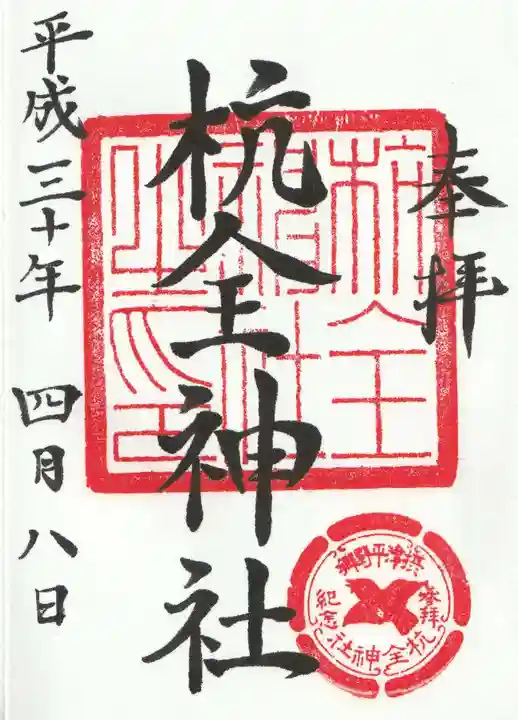 奉拝
杭全神社
平成三十年 四月八日
杭全
神社
之印
摂津平野郷
参拝
紀念
杭全神社